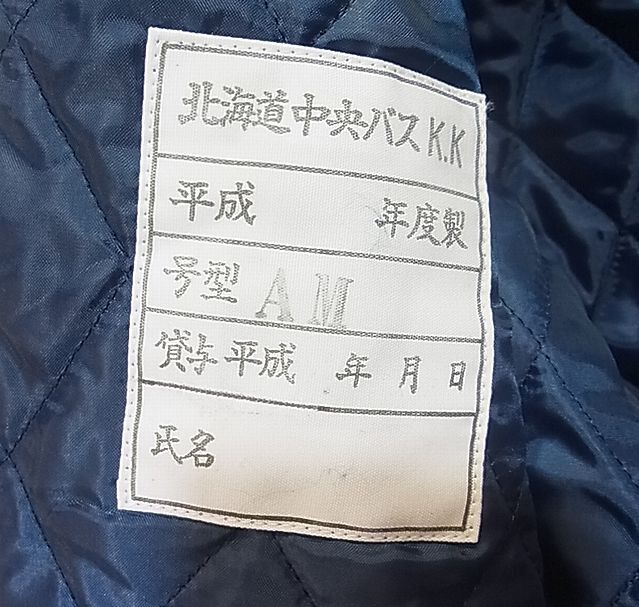 北海道中央バスK.K
平成 年度製
号型 AM
貸与平成 年 月 日
氏名